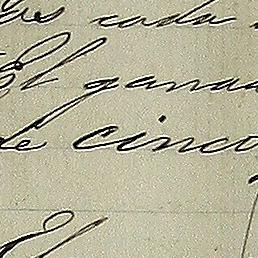 cada
El gana
de cinco
El